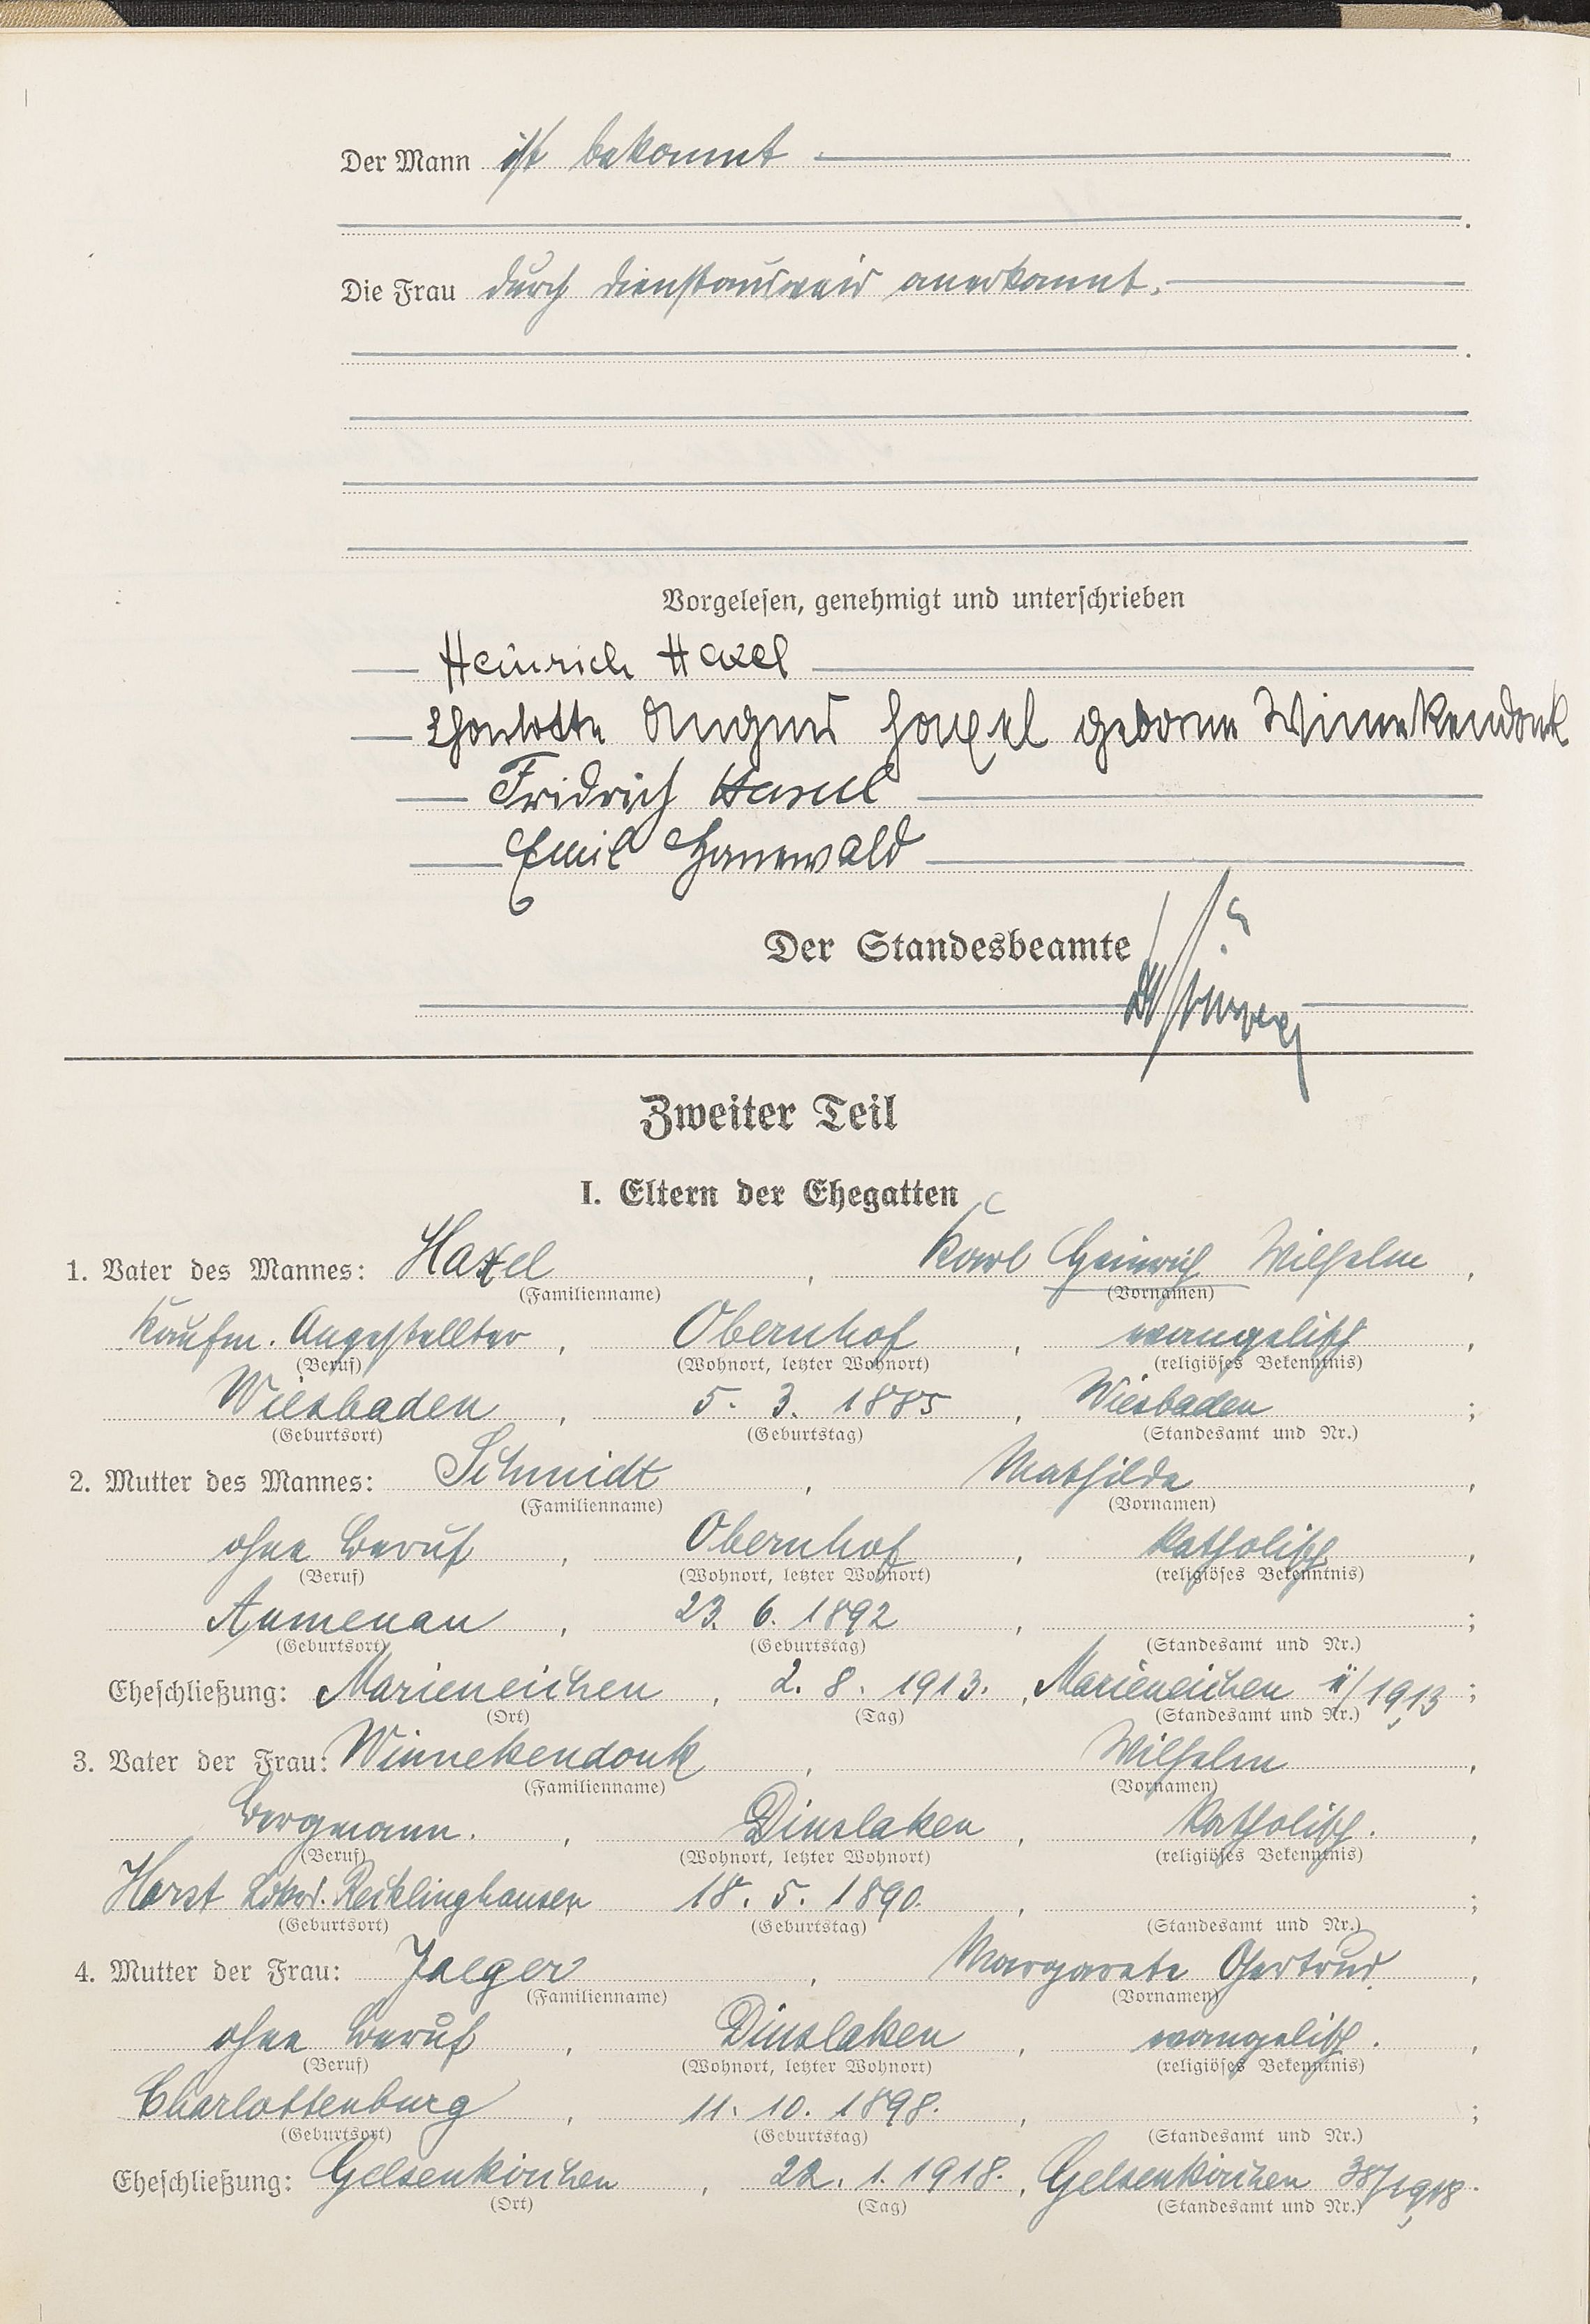 Der Mann ist bekannt
Die Frau durch Dienstausweis anerkannt.
Vorgelesen, genehmigt und unterschrieben
Heinrich Haxel
Charlotte Agnes Haxel geborene Winnekendonk
Fridrich Haxel
Emil Hanewald
Der Standesbeamte
Zweiter Teil
I. Eltern der Ehegatten
1. Vater des Mannes: Haxel, Karl Heinrich Wilhelm,
(Familienname) (Vornamen)
Kaufm. Angestellter, Obernhof, evangelisch,
(Beruf) (Wohnort, letzter Wohnort) (religiöses Bekenntnis)
Wiesbaden, 5. 3. 1885, Wiesbaden;
(Geburtsort) (Geburtstag) (Standesamt und Nr.)
2. Mutter des Mannes: Schmidt, Mathilde,
(Familienname) (Vornamen)
ohne Beruf, Obernhof, katholisch,
(Beruf) (Wohnort, letzter Wohnort) (religiöses Bekenntnis)
Aumenau, 23. 6. 1892, ;
(Geburtsort) (Geburtstag) (Standesamt und Nr.)
Eheschließung: Marieneichen, 2. 8. 1913., Marieneichen /1913;
(Ort) (Tag) (Standesamt und Nr.)
3. Vater der Frau: Winnekendonk, Wilhelm,
(Familienname) (Vornamen)
Bergmann., Dinslaken, katholisch.,
(Beruf) (Wohnort, letzter Wohnort) (religiöses Bekenntnis)
Horst Recklinghausen, 18. 5. 1890., ;
(Geburtsort) (Geburtstag) (Standesamt und Nr.)
4. Mutter der Frau: Jaeger, Margarete Gertrud,
(Familienname) (Vornamen)
ohne Beruf, Dinslaken, evangelisch.,
(Beruf) (Wohnort, letzter Wohnort) (religiöses Bekenntnis)
Charlottenburg, 11. 10. 1898., ;
(Geburtsort) (Geburtstag) (Standesamt und Nr.)
Eheschließung: Gelsenkirchen, 22. 1. 1918., Gelsenkirchen 38/1918.
(Ort) (Tag) (Standesamt und Nr.)